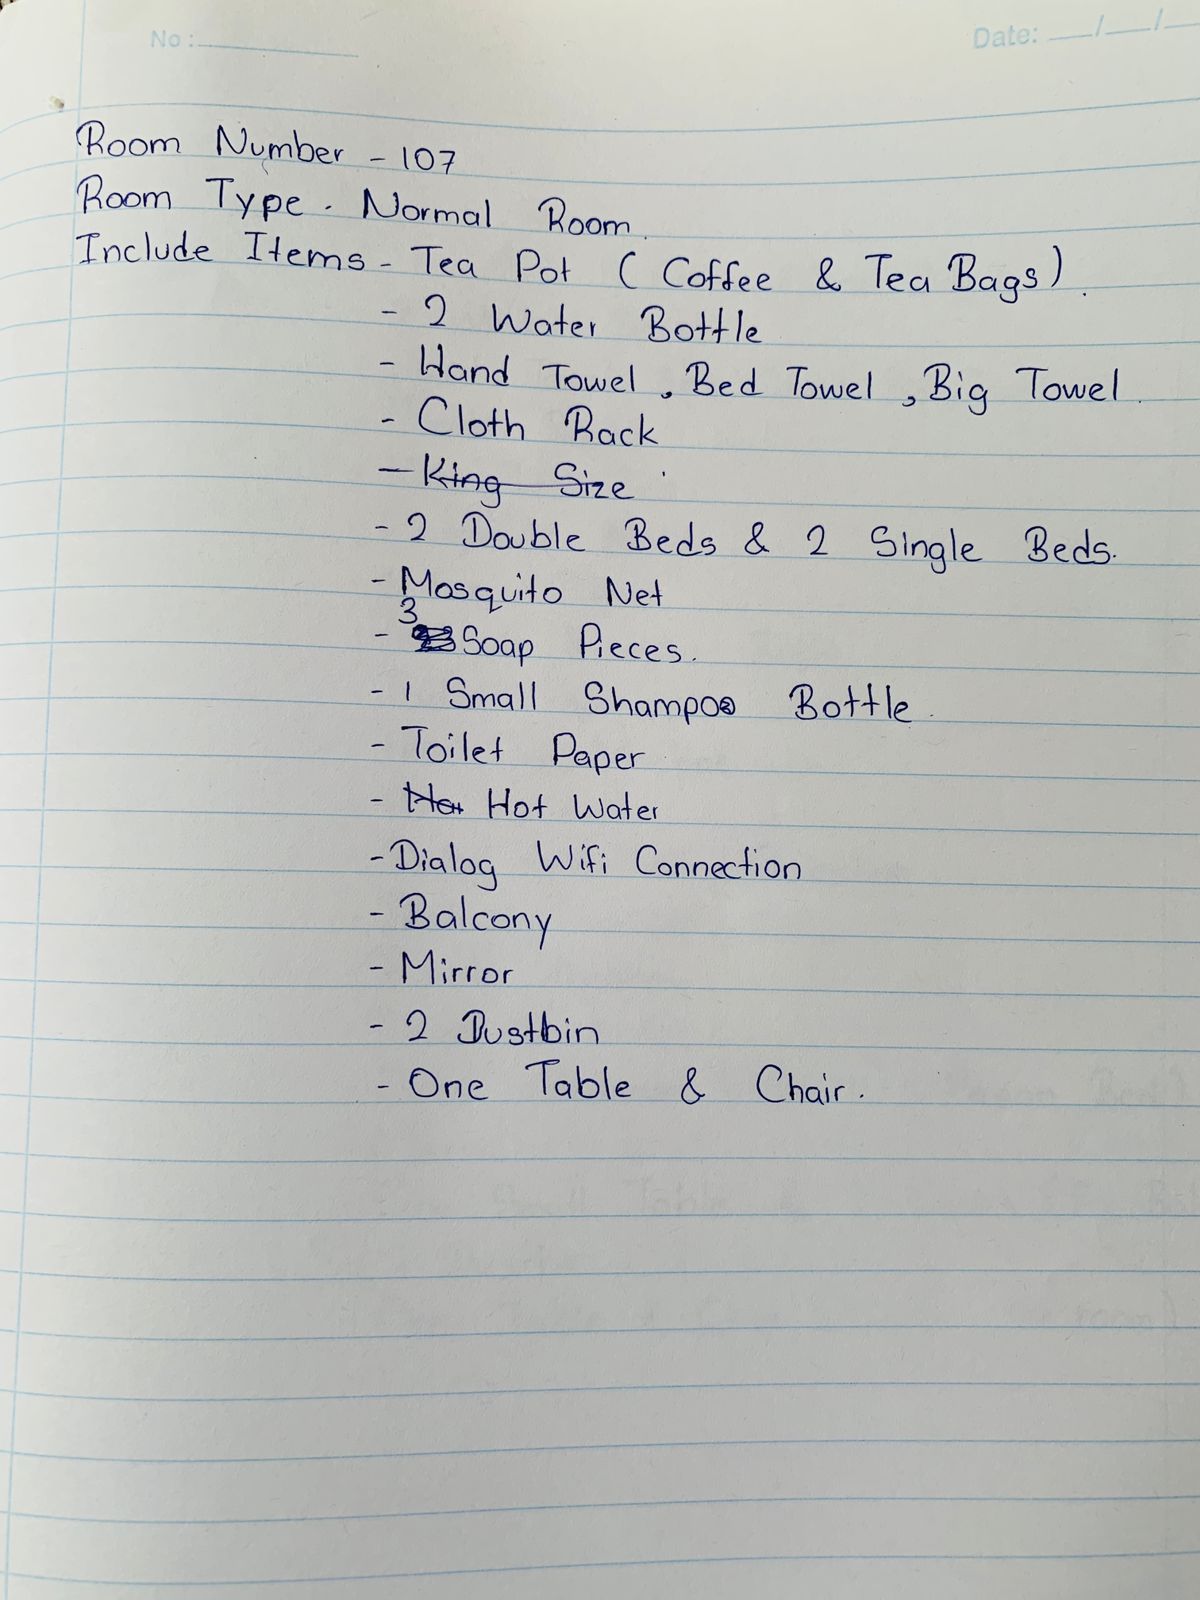 No :
Date: __/__/__
Room Number - 107
Room Type - Normal Room.
Include Items - Tea Pot ( Coffee & Tea Bags).
- 2 Water Bottle
- Hand Towel, Bed Towel, Big Towel.
- Cloth Rack
- King Size
- 2 Double Beds & 2 Single Beds.
- Mosquito Net
- 3 Soap Pieces.
- 1 Small Shampoo Bottle.
- Toilet Paper
- Hot Hot Water
- Dialog Wifi Connection
- Balcony
- Mirror
- 2 Dustbin
- One Table & Chair.